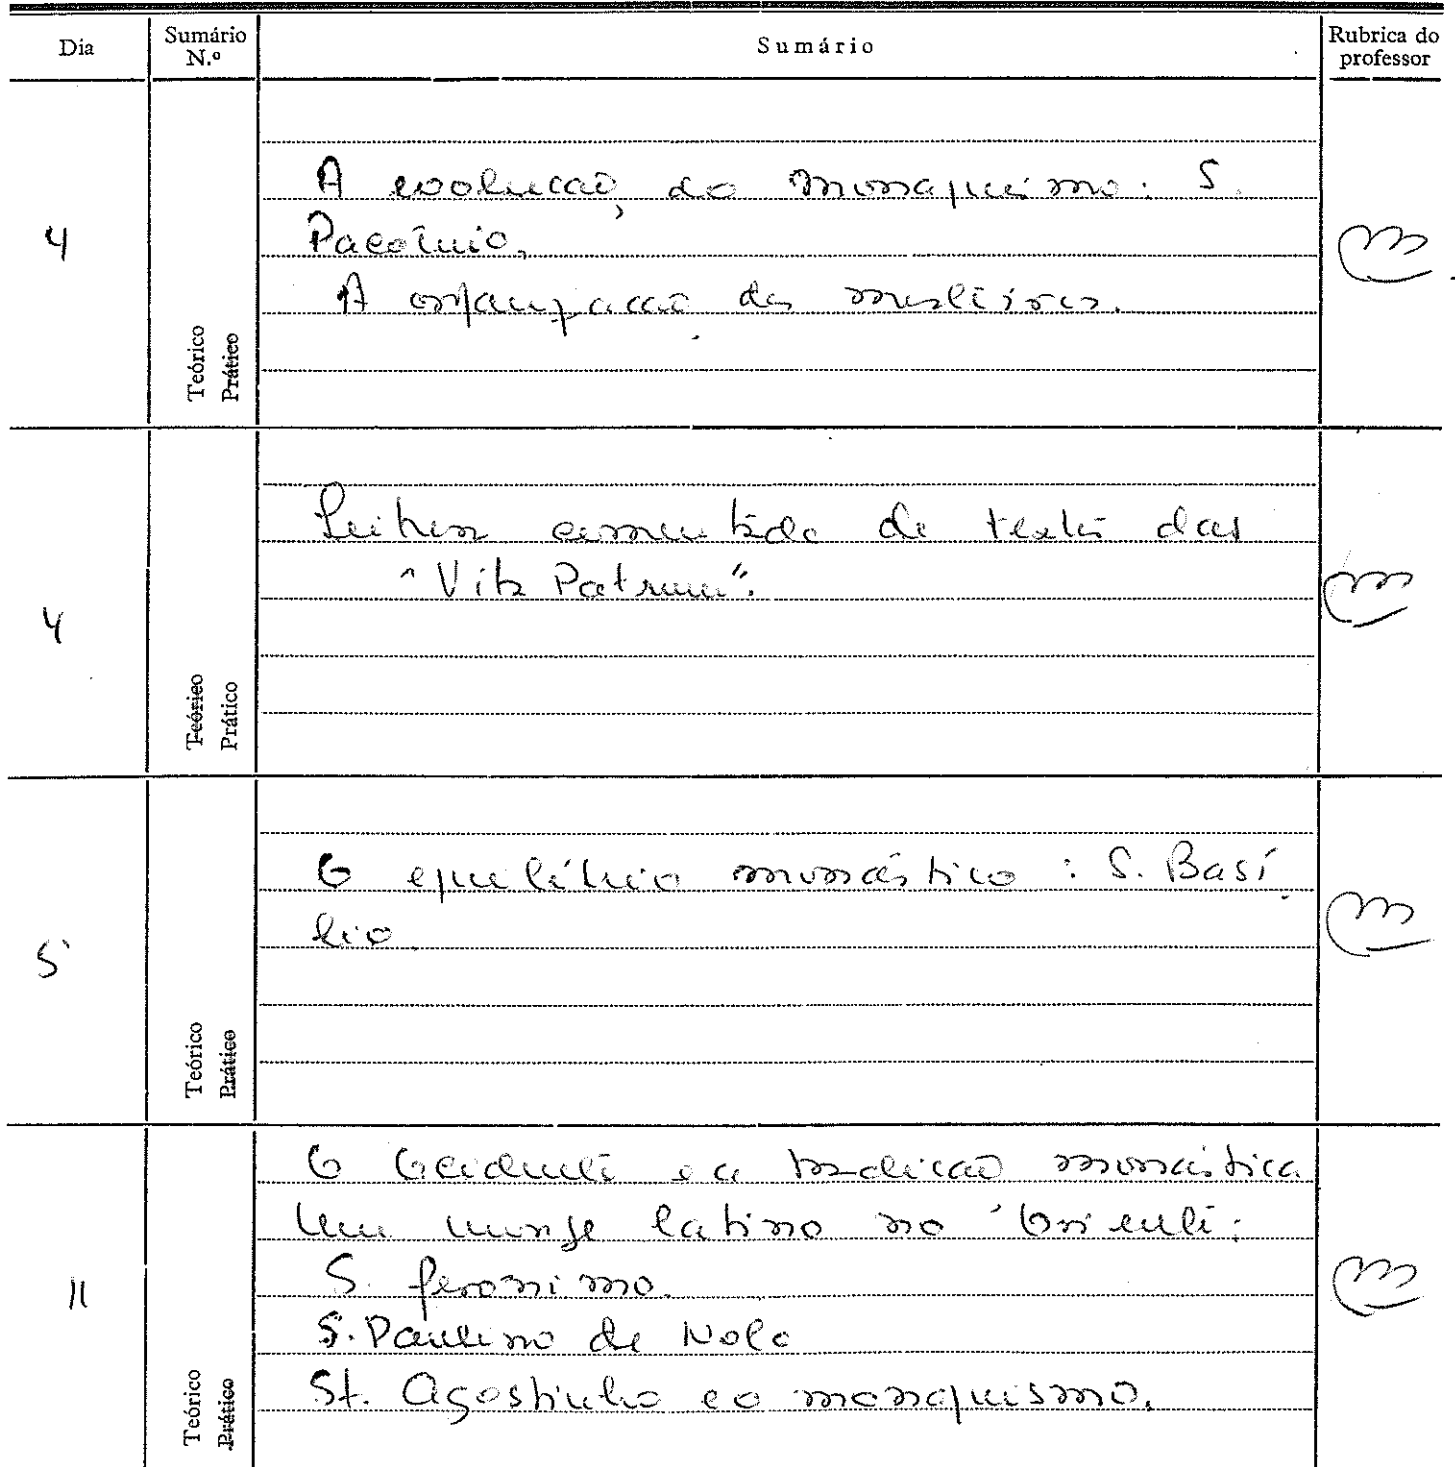 Dia
Sumário N.º
Sumário
Rubrica do professor
4
Teórico
Prático
A evolução do monaquismo: S.
Pacómio.
A organização dos mosteiros.
4
Teórico
Prático
Leitura comentada de textos das
"Vita Patrum".
5
Teórico
Prático
O equilíbrio monástico : S. Basí
lio.
11
Teórico
Prático
O Ocidente e a tradição monástica
Um monge latino no Oriente:
S. Jerónimo.
S. Paulino de Nola
St. Agostinho e o monaquismo.